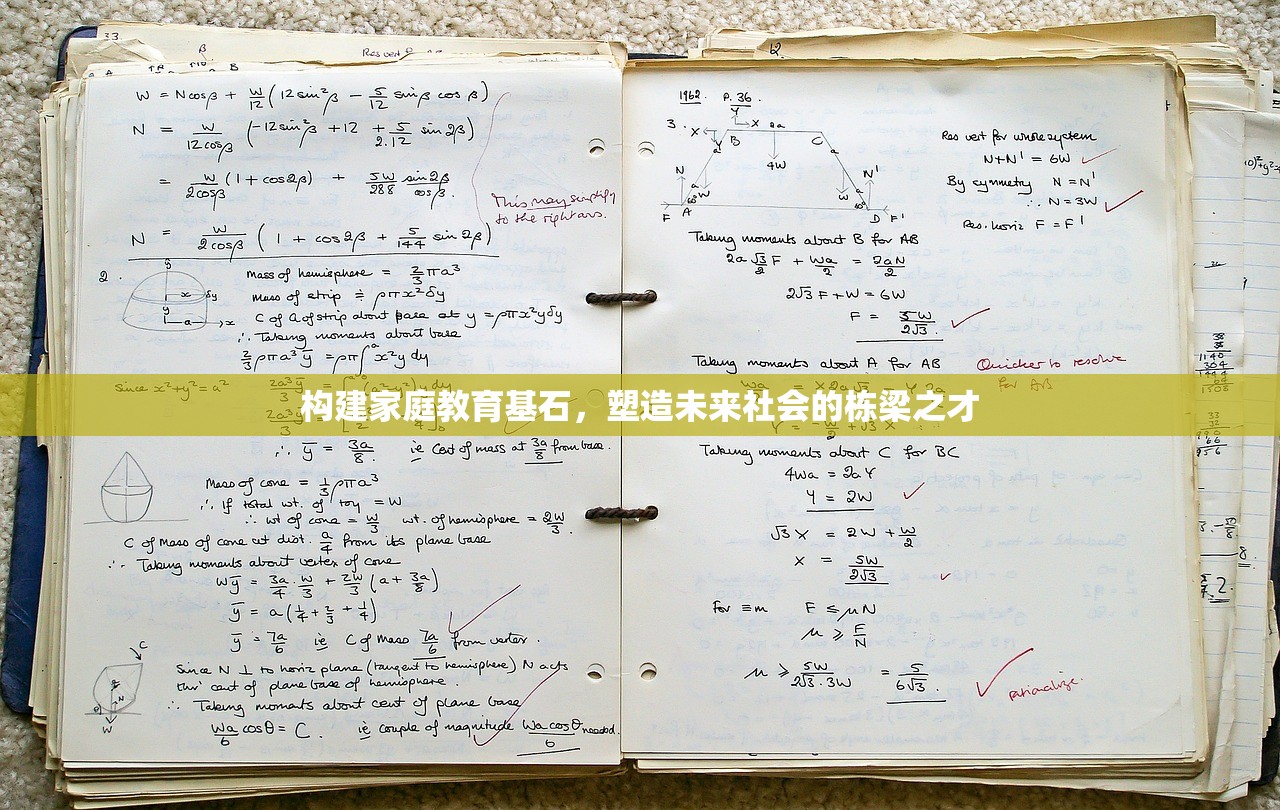 33
Res vert
W = Ncosβ + W/12 (12 sin²β − 5/12 sinβ cosβ)
N = W/12cosβ (−12sin²β + 12 + 5/2.12 sin2β)
= W/2cosβ (1 + cos2β) + 5W/288 sin2β/cosβ.
This may simplify
to the right ans.
N = W/2cosβ (1 + cos2β + 5/144 sin2β)
2.
Mass of hemisphere = 2/3 πa³
Mass of strip ≑ ρπx²δy
C of G of strip about base at y = ρπx²yδy
∴ Taking moments about base
2/3 ρπa³ȳ = ρπ∫x²y dy
since x²+y² = a²
构建家庭教育基石，塑造未来社会的栋梁之才
∴ ȳ = 3a/8 ie Cent of mass at 3a/8 from base.
Mass of cone = 1/3 ρπa³
∴ If total wt. of toy = W
∴ wt of cone = W/3 wt. of hemisphere = 2W/3.
C of Mass of cone at dist. a/4 from its plane base
∴ Taking moments about vertex of cone
Wȳ = 3a/4 . W/3 + 2W/3 (a + 3a/8)
ȳ = a(1/4 + 2/3 + 1/4)
ȳ = 7a/6 ie C of Mass 7a/6 from vertex.
Since N ⊥ to horiz plane (tangent to hemisphere) N acts
thro' cent of plane base of hemisphere.
∴ Taking moments about cent of plane base
Wa/6 cosθ = C. ie couple of magnitude Wa cosθ/6 needed.
1962. P. 36.
3.
Res vert for whole system
N+N' = 6W
By symmetry N = N'
∴ N = 3W
Res. horiz F = F'
Taking moments about B for AB
2a √3/2 F + Wa/2 = 2aN/2
2√3 F + W = 6W
F = 5W/2√3.
Taking moments about A for AB
Quicker to resolve
for AB
Taking moments about C for BC
4Wa = 2aY
Y = 2W
√3 X = 2W + W/2
X = 5W/2√3
For ≡m F ≤ μN
μ ≥ F/N
μ ≥ 5W/2√3.3W = 5/6√3.
rationalize.